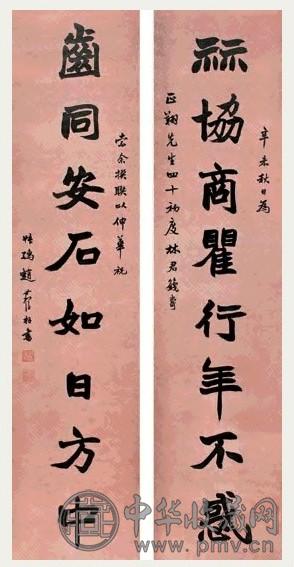 辛未秋日為
祘協商瞿行年不惑
正翔先生四十初度林君
索余撰聯以伸華祝
齒同安石如日方中
趙書
中华收藏网
www.pmv.cn